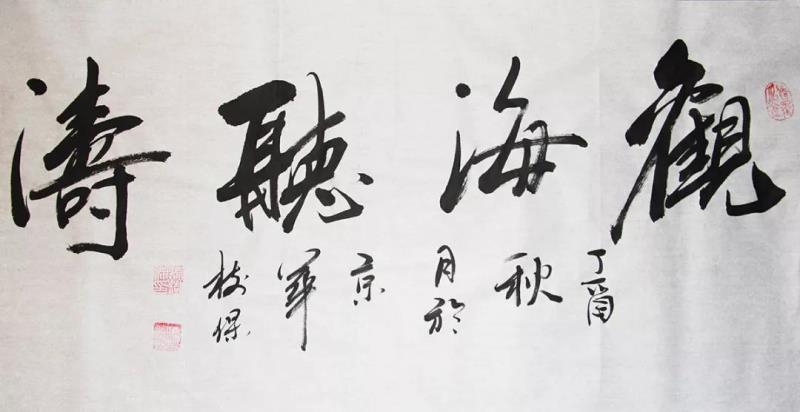 觀海聽濤
丁酉秋月於京華